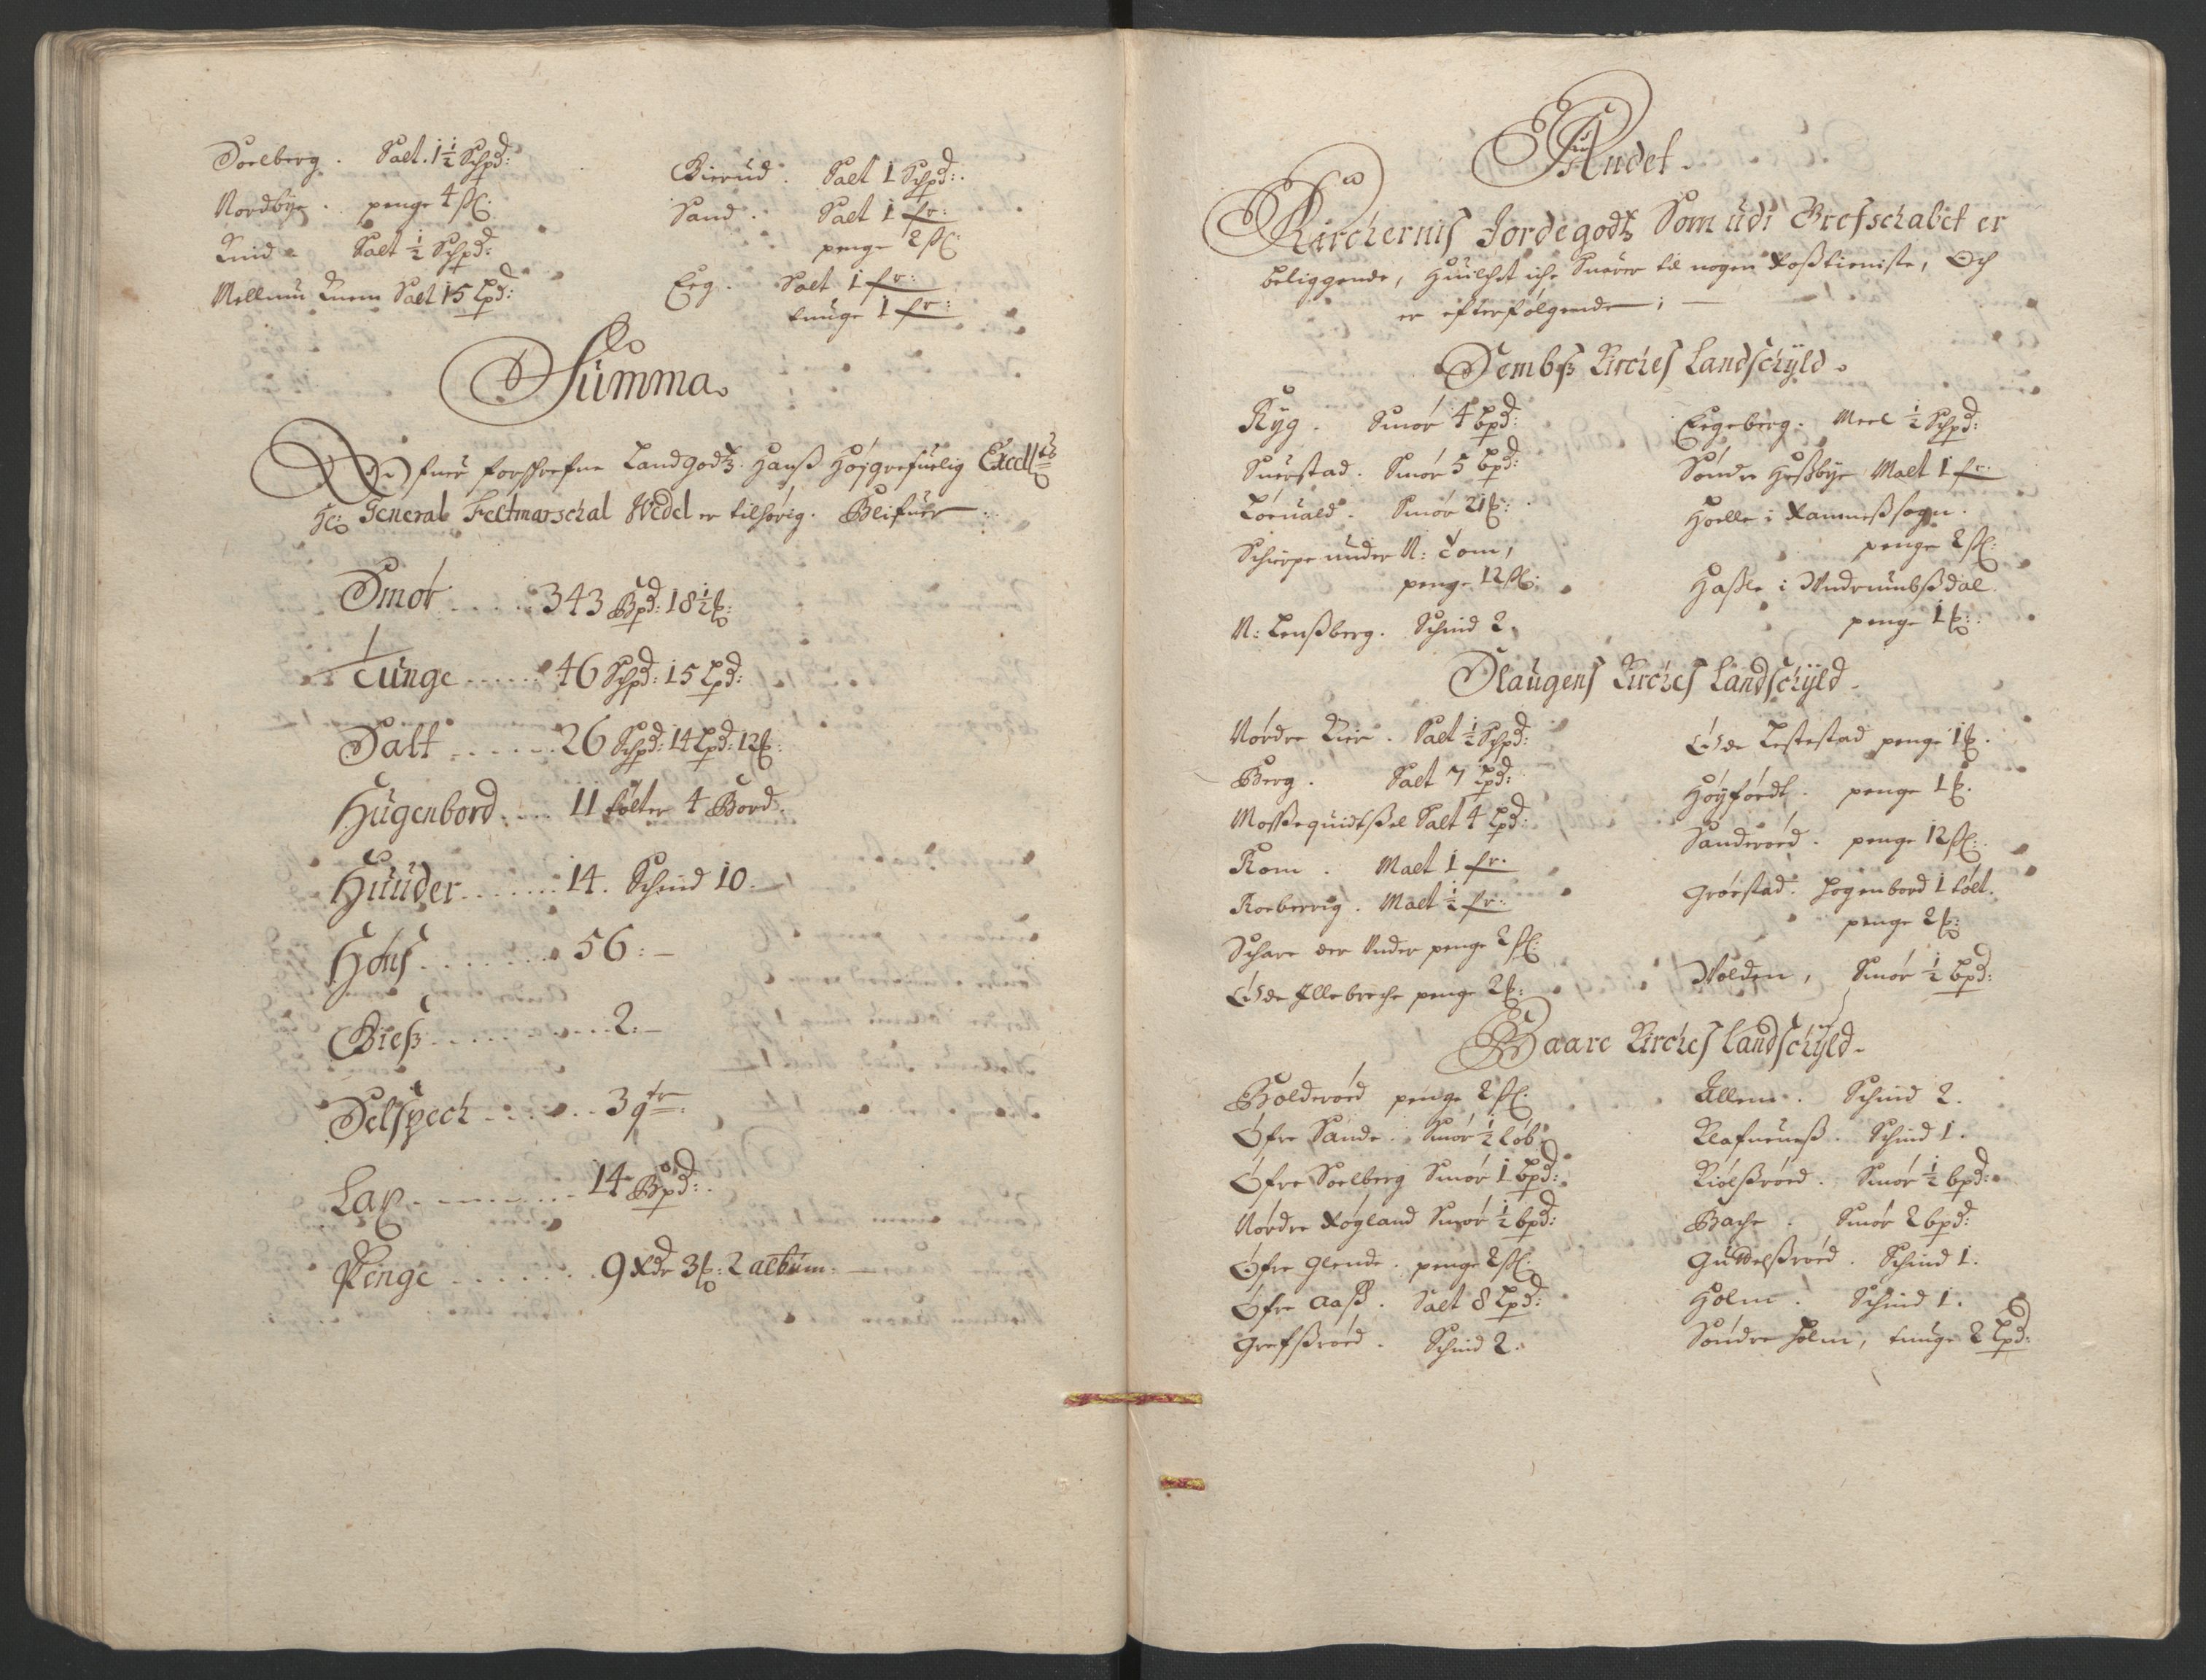 Soelberg . Salt . 1½ Schpd:
Nordbye . penge 4 ß:
Knid - Salt ½ Schpd:
Mellum Knem Salt 15 Lpd:
Bierud . Salt 1 Schpd:
Sand . Salt 1 fr:
penge 2 ß:
Eeg . Salt 1 fr:
tunge 1 fr:
Summa.
Ofuer forschrefne Landgodtz. Hanß Høygrefuelig Excell:tz
Hr: General Feltmarschal Wedel er tilhørig. Blifuer
Smør . . . . . 343 Bpd: 18½ :
Tunge . . . . . 46 Schpd: 15 Lpd:
Salt . . . . . 26 Schpd: 14 Lpd: 12 :
Hugenbord . . . 11 tølter 4 Bord.
Huuder . . . . . 14. Schind 10.
Høns . . . . . 56: -
Gieß . . . . . 2: -
Selspech . . . . . 3 qtr:
Lax . . . . . 14 Bpd:
Penge . . . . . 9 Rdr 3 : 2 album.
Andet.
Kirchernis Jordegodtz Som udi Grefschabet er
beliggende, Huilchet iche Suarer til nogen Roßtieniste, Och
er efterfølgende ;
Sembß Kirches Landschyld.
Ryg . Smør 4 bpd:
Suerstad . Smør 5 bpd:
Løeuald . Smør 21 :
Schierpe under N: Tom,
penge 12 ß:
N: Lenßberg . Schind 2.
Eegeberg . Meel ½ Schpd:
Søndre Heßbye Malt 1 fr:
Hoelle i Ramneßsogn.
penge 2 ß:
Haßle i Undrumbßdal
penge 1 :
Slaugens Kirches Landschyld.
Nordre Kier . Salt ½ Schpd:
Berg . Salt 7 Lpd:
Mosßequidtßel Salt 4 Lpd:
Rom . Malt 1 fr.
Roeberrig . Malt ½ fr:
Schare der Under penge 2 ß:
Øde Illebreche penge 2 :
Øde Lestestad penge 1 .
Høyfordt . penge 1 .
Sanderød . penge 12 ß:
Grørstad . Hogenbord 1 tølt.
penge 2 :
Wolden , Smør ½ bpd:
Baare Kirches Landschyld.
Bolderød penge 2 ß:
Øfre Sande . Smør ½ løb
Øfre Soelberg Smør 1 bpd:
Nordre Røgland Smør ½ bpd:
Øfre Glende . penge 2 ß:
Øfre Aaß . Salt 8 Lpd:
Grefßrød . Schind 2.
Allem . Schind 2.
Klafueneß . Schind 1.
Kiølßrød . Smør ½ bpd:
Bache . Smør 2 bpd:
Guttelßrød . Schind 1.
Holm . Schind 1.
Søndre Holm, tunge 2 Lpd: